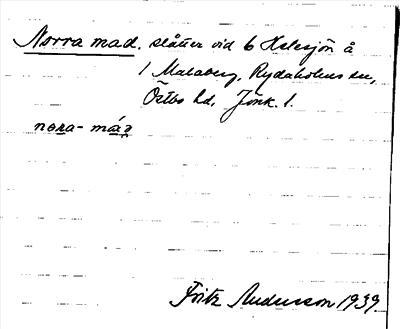 Norra mad. slåtter vid 6 Helesjön å
1 Malaberg, Rydaholms sn,
Östbo hd, Jönk. l.
nora-ma
Fritz Andersson 1939.